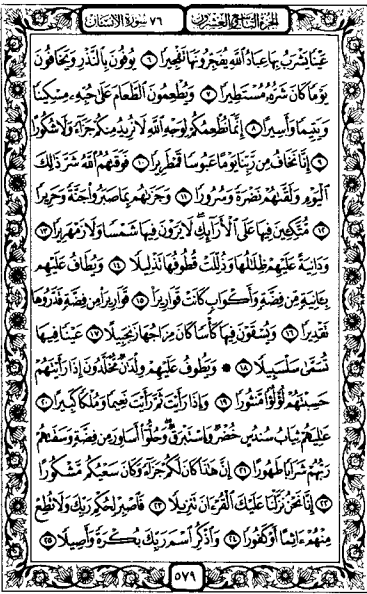 الجزء التاسع والعشرون ٧٦ سورة الإنسان
عَيْنًا يَشْرَبُ بِهَا عِبَادُ اللَّهِ يُفَجِّرُونَهَا تَفْجِيرًا ٦ يُوفُونَ بِالنَّذْرِ وَيَخَافُونَ
يَوْمًا كَانَ شَرُّهُ مُسْتَطِيرًا ٧ وَيُطْعِمُونَ الطَّعَامَ عَلَى حُبِّهِ مِسْكِينًا
وَيَتِيمًا وَأَسِيرًا ٨ إِنَّمَا نُطْعِمُكُمْ لِوَجْهِ اللَّهِ لَا نُرِيدُ مِنْكُمْ جَزَاءً وَلَا شُكُورًا
٩ إِنَّا نَخَافُ مِن رَّبِّنَا يَوْمًا عَبُوسًا قَمْطَرِيرًا ١٠ فَوَقَاهُمُ اللَّهُ شَرَّ ذَلِكَ
الْيَوْمِ وَلَقَّاهُمْ نَضْرَةً وَسُرُورًا ١١ وَجَزَاهُم بِمَا صَبَرُوا جَنَّةً وَحَرِيرًا
١٢ مُتَّكِئِينَ فِيهَا عَلَى الْأَرَائِكِ لَا يَرَوْنَ فِيهَا شَمْسًا وَلَا زَمْهَرِيرًا ١٣
وَدَانِيَةً عَلَيْهِمْ ظِلَالُهَا وَذُلِّلَتْ قُطُوفُهَا تَذْلِيلًا ١٤ وَيُطَافُ عَلَيْهِم
بِآنِيَةٍ مِّن فِضَّةٍ وَأَكْوَابٍ كَانَتْ قَوَارِيرَا ١٥ قَوَارِيرَا مِن فِضَّةٍ قَدَّرُوهَا
تَقْدِيرًا ١٦ وَيُسْقَوْنَ فِيهَا كَأْسًا كَانَ مِزَاجُهَا زَنجَبِيلًا ١٧ عَيْنًا فِيهَا
تُسَمَّى سَلْسَبِيلًا ١٨ ۞ وَيَطُوفُ عَلَيْهِمْ وِلْدَانٌ مُّخَلَّدُونَ إِذَا رَأَيْتَهُمْ
حَسِبْتَهُمْ لُؤْلُؤًا مَّنثُورًا ١٩ وَإِذَا رَأَيْتَ ثَمَّ رَأَيْتَ نَعِيمًا وَمُلْكًا كَبِيرًا ٢٠
عَالِيَهُمْ ثِيَابُ سُندُسٍ خُضْرٌ وَإِسْتَبْرَقٌ وَحُلُّوا أَسَاوِرَ مِن فِضَّةٍ وَسَقَاهُمْ
رَبُّهُمْ شَرَابًا طَهُورًا ٢١ إِنَّ هَذَا كَانَ لَكُمْ جَزَاءً وَكَانَ سَعْيُكُم مَّشْكُورًا
٢٢ إِنَّا نَحْنُ نَزَّلْنَا عَلَيْكَ الْقُرْءَانَ تَنزِيلًا ٢٣ فَاصْبِرْ لِحُكْمِ رَبِّكَ وَلَا تُطِعْ
مِنْهُمْ ءَاثِمًا أَوْ كَفُورًا ٢٤ وَاذْكُرِ اسْمَ رَبِّكَ بُكْرَةً وَأَصِيلًا ٢٥
٥٧٩